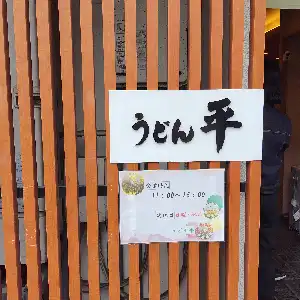 うどん 平
営業時間
11:00～15:00
定休日